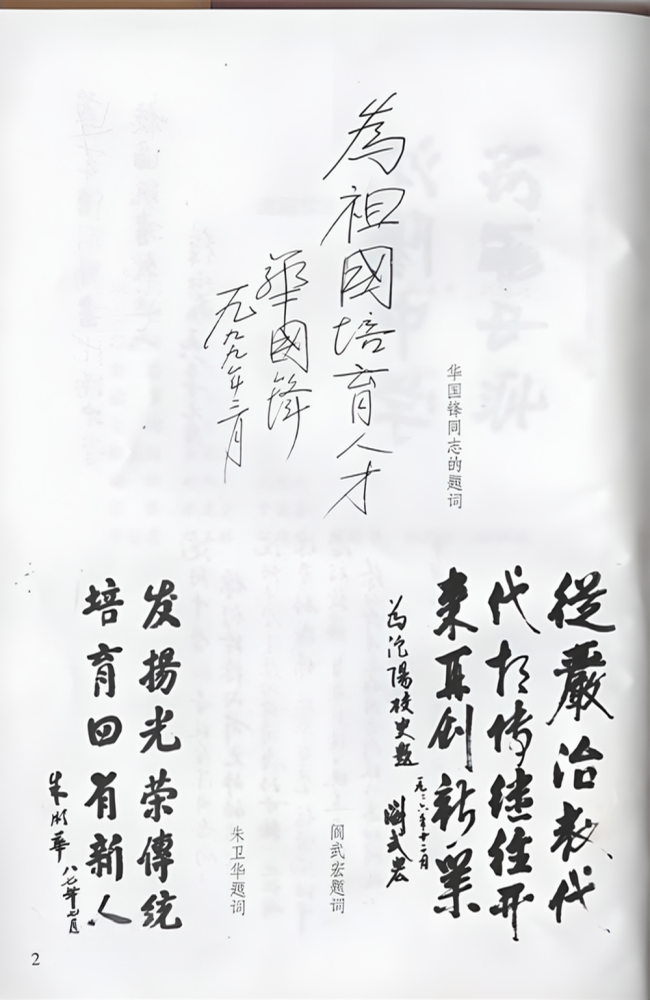 华国锋同志的题词
為祖國培育人才
華國鋒
一九九九年二月
從嚴治教代
代相傳继往开
来再创新業
为汾陽校史题
一九八六年十二月
阎武宏
阎武宏题词
发揚光荣傳統
培育四有新人
朱卫華
朱卫华题词
2